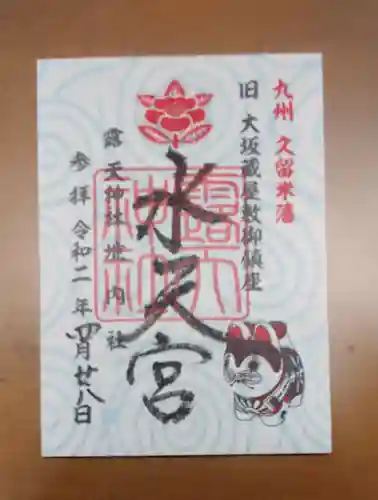 九州 久留米藩
旧 大坂蔵屋敷御鎮座
水天宮
露天神社境内社
参拝 令和二年四月廿八日